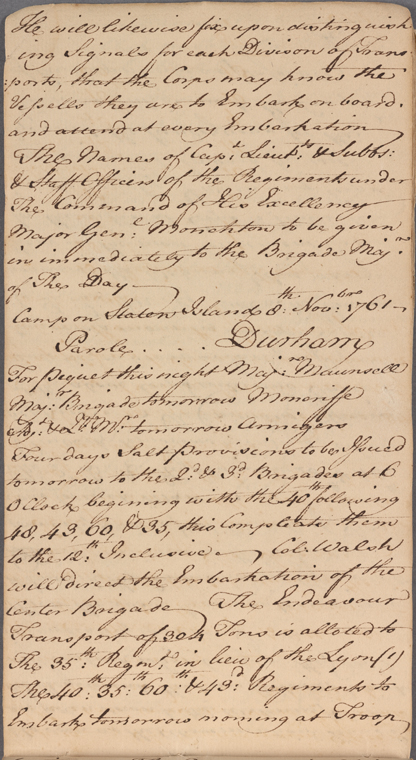 He will likewise fix upon distinguish
ing Signals for each Divison of Trans
ports, that the Corps may know the
Vessells they are to Embark on board.
and attend at every Embarkation
The Names of Capt. Lieuts. & Subbs:
& Staff Officers of the Regiments under
The Command of His Excellency
Major Genl: Monckton to be given
in immediately to the Brigade Majrs
of The Day
Camp on Staten Island 8th: Novbre 1761
Parole .... Durham
For Piquet this night Majr: Maunsell
Majr: Brigade tomorrow Moncriffe
Adjt & Qr Mr tomorrow Amigers
Four days Salt provisions to be Issued
tomorrow to the 2d: & 3d: Brigades at 6
OClock begining with the 40th following
48, 43, 60, & 35, this Compleats them
to the 12th: Inclusive. Col. Walsh
will direct the Embarkation of the
Center Brigade The Endeavour
Transport of 304 Tons is alloted to
The 35th Regmt: in lieu of the Lyon (1)
The 40th: 35th: 60th: & 43d: Regiments to
Embark tomorrow morning at Troop